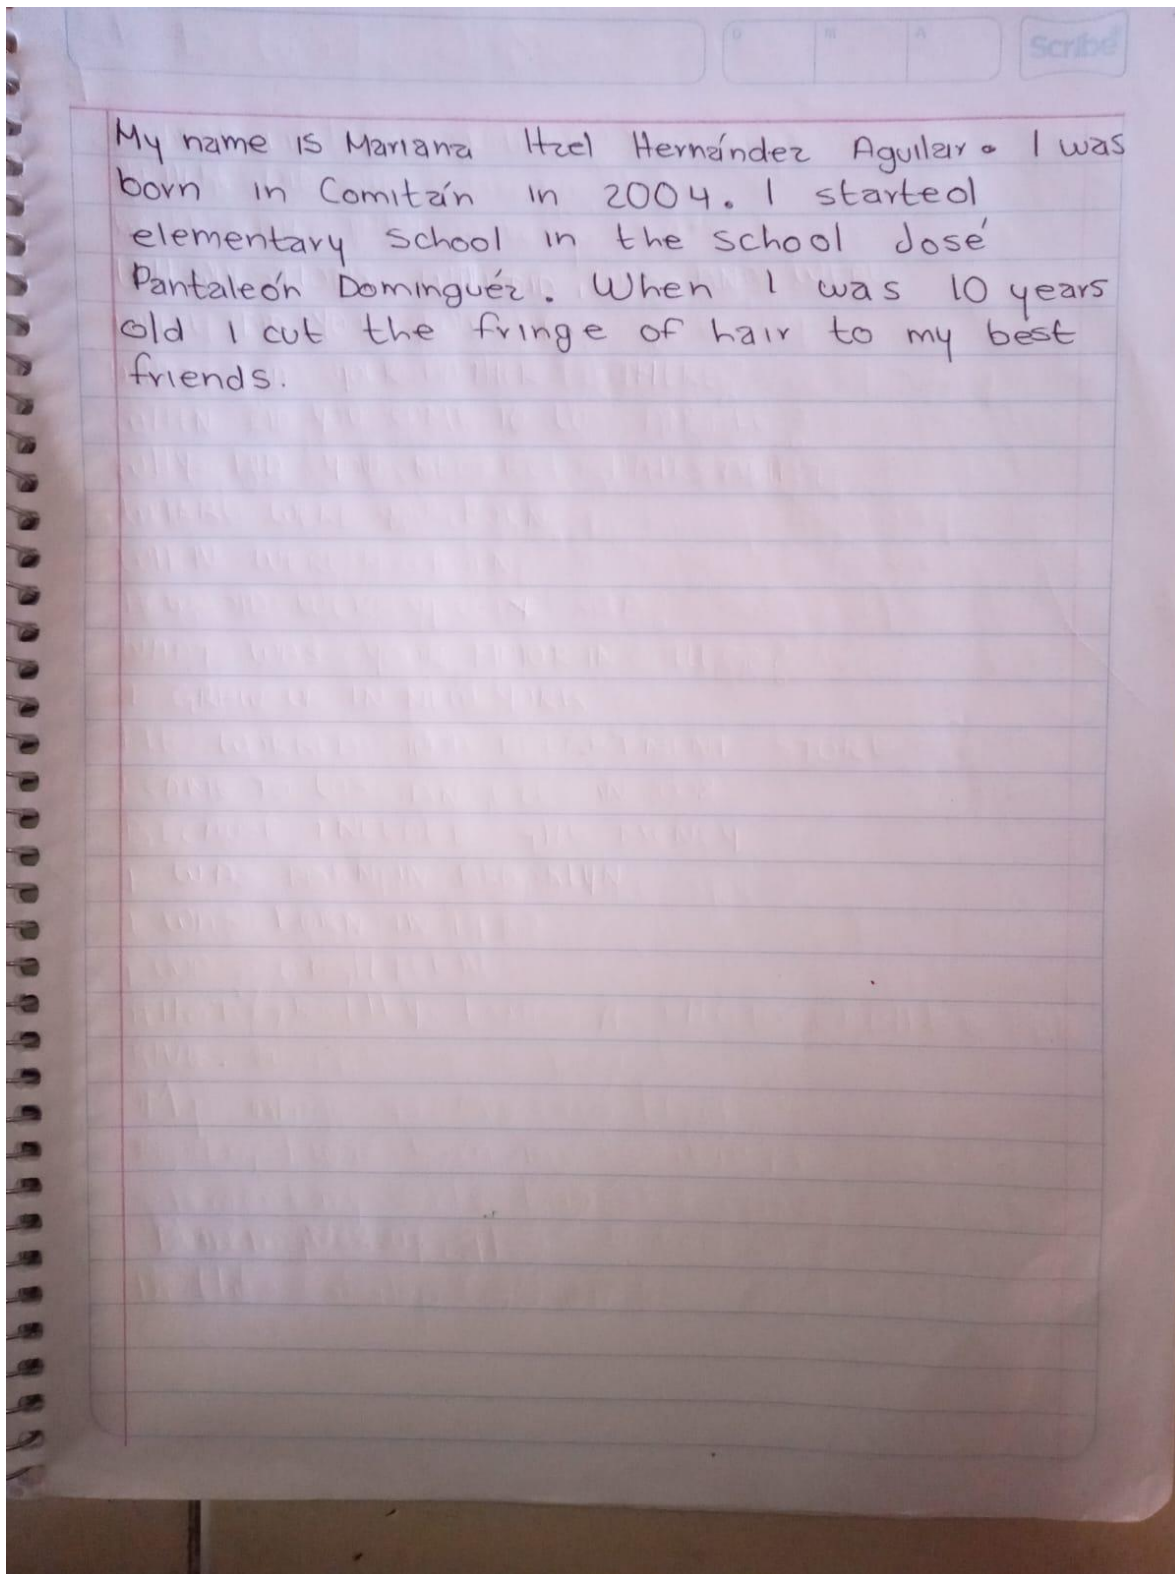 Scribe
D M A
My name is Mariana Itzel Hernández Aguilar. I was
born in Comitán in 2004. I started
elementary school in the school José
Pantaleón Dominguéz. When I was 10 years
old I cut the fringe of hair to my best
friends.